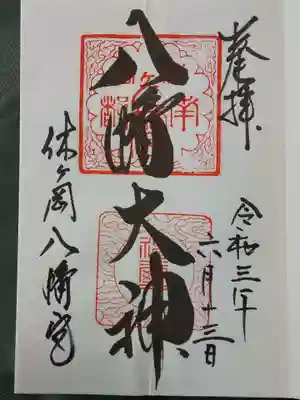 奉拝
令和三年
六月十三日
八幡大神
休ヶ岡八幡宮